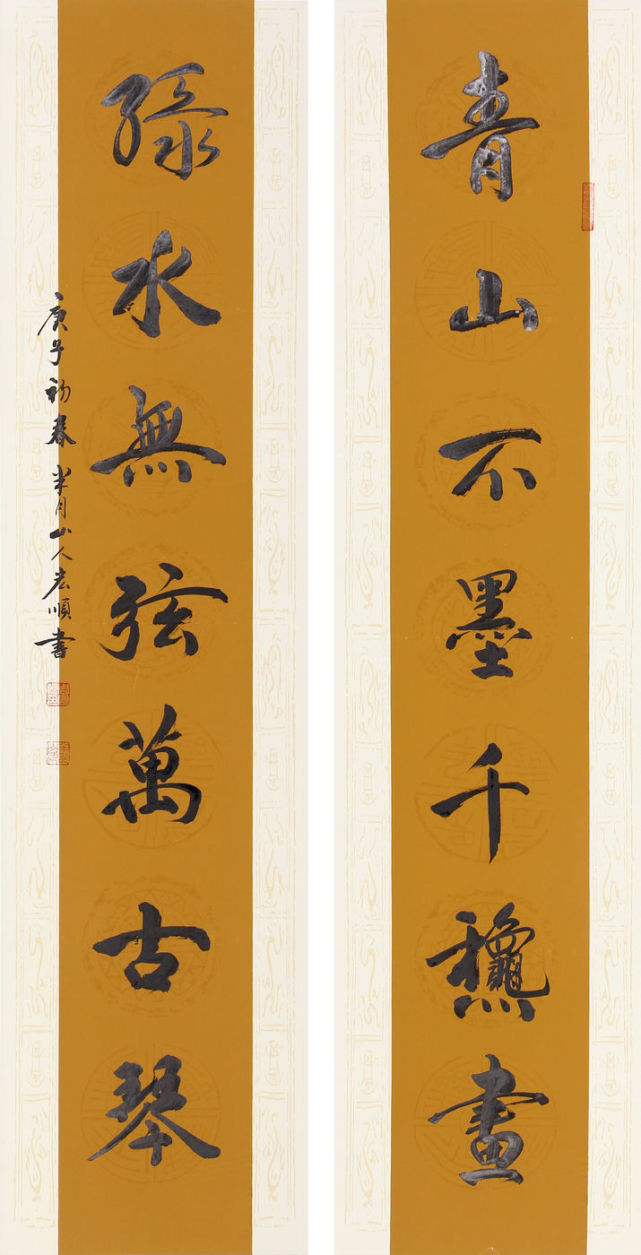 青山不墨千龝畫
綠水無弦萬古琴
庚子初春半月山人宏順書